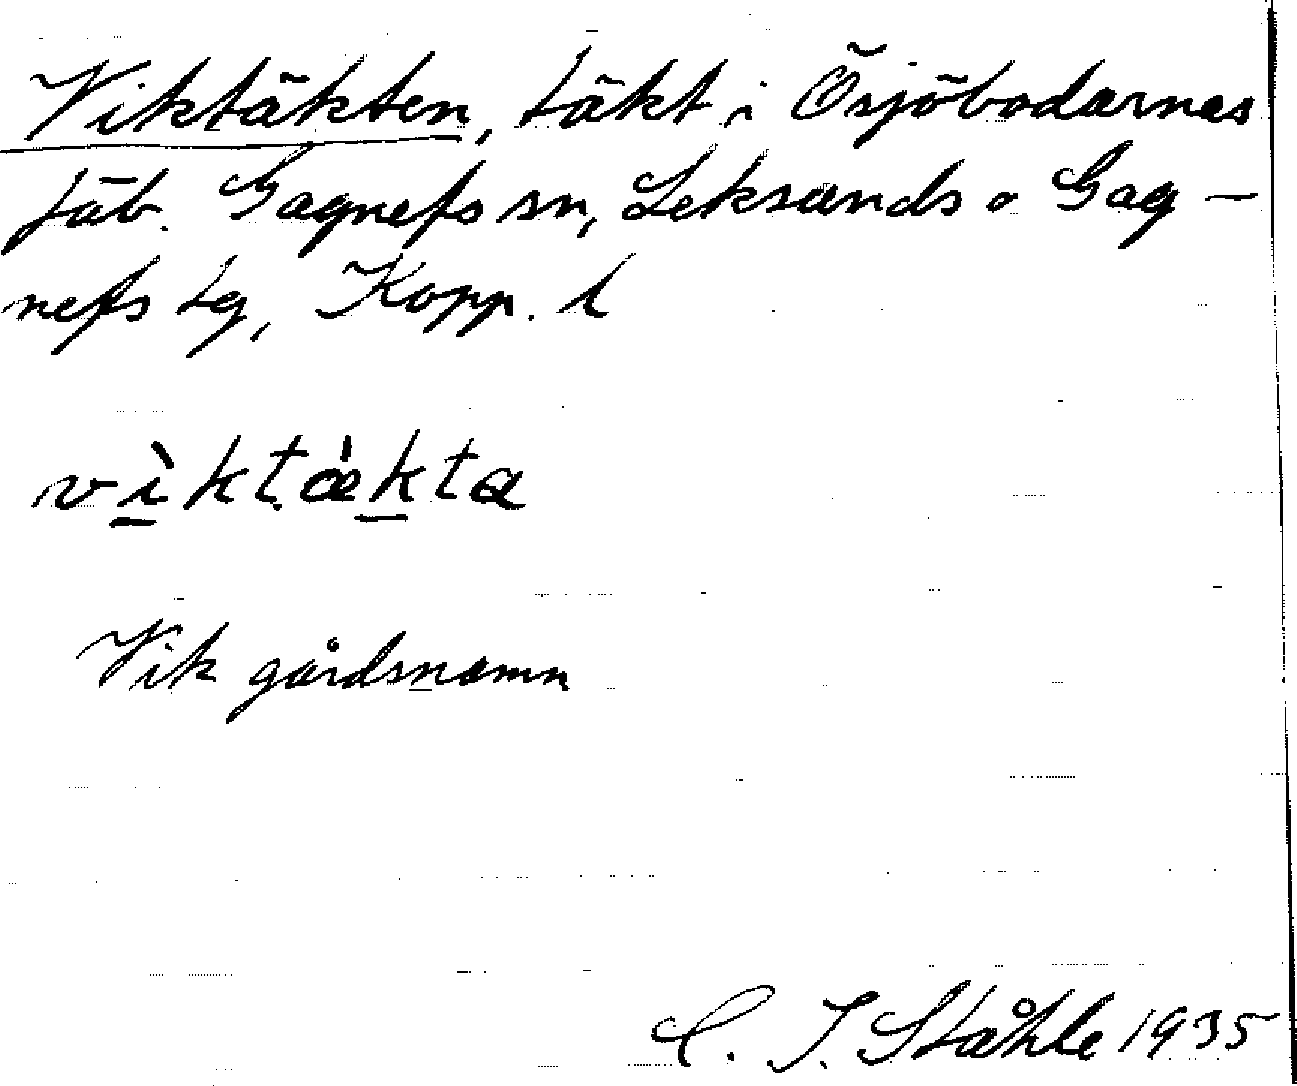 Viktäkten, täkt i Ösjöbodarnas
fäb. Gagnefs sn, Leksands o Gag-
nefs tg, Kopp. l
vìktækta
Vik gårdsnamn
C. I. Ståhle 1935